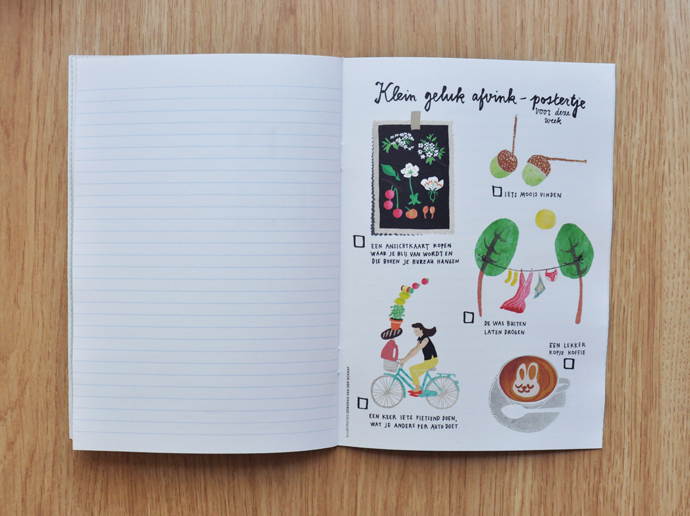 Klein geluk afvink-postertje
voor deze
week
IETS MOOIS VINDEN
EEN ANSICHTKAART KOPEN
WAAR JE BLIJ VAN WORDT EN
DIE BOVEN JE BUREAU HANGEN
DE WAS BUITEN
LATEN DROGEN
EEN LEKKER
KOPJE KOFFIE
EEN KEER IETS FIETSEND DOEN,
WAT JE ANDERS PER AUTO DOET